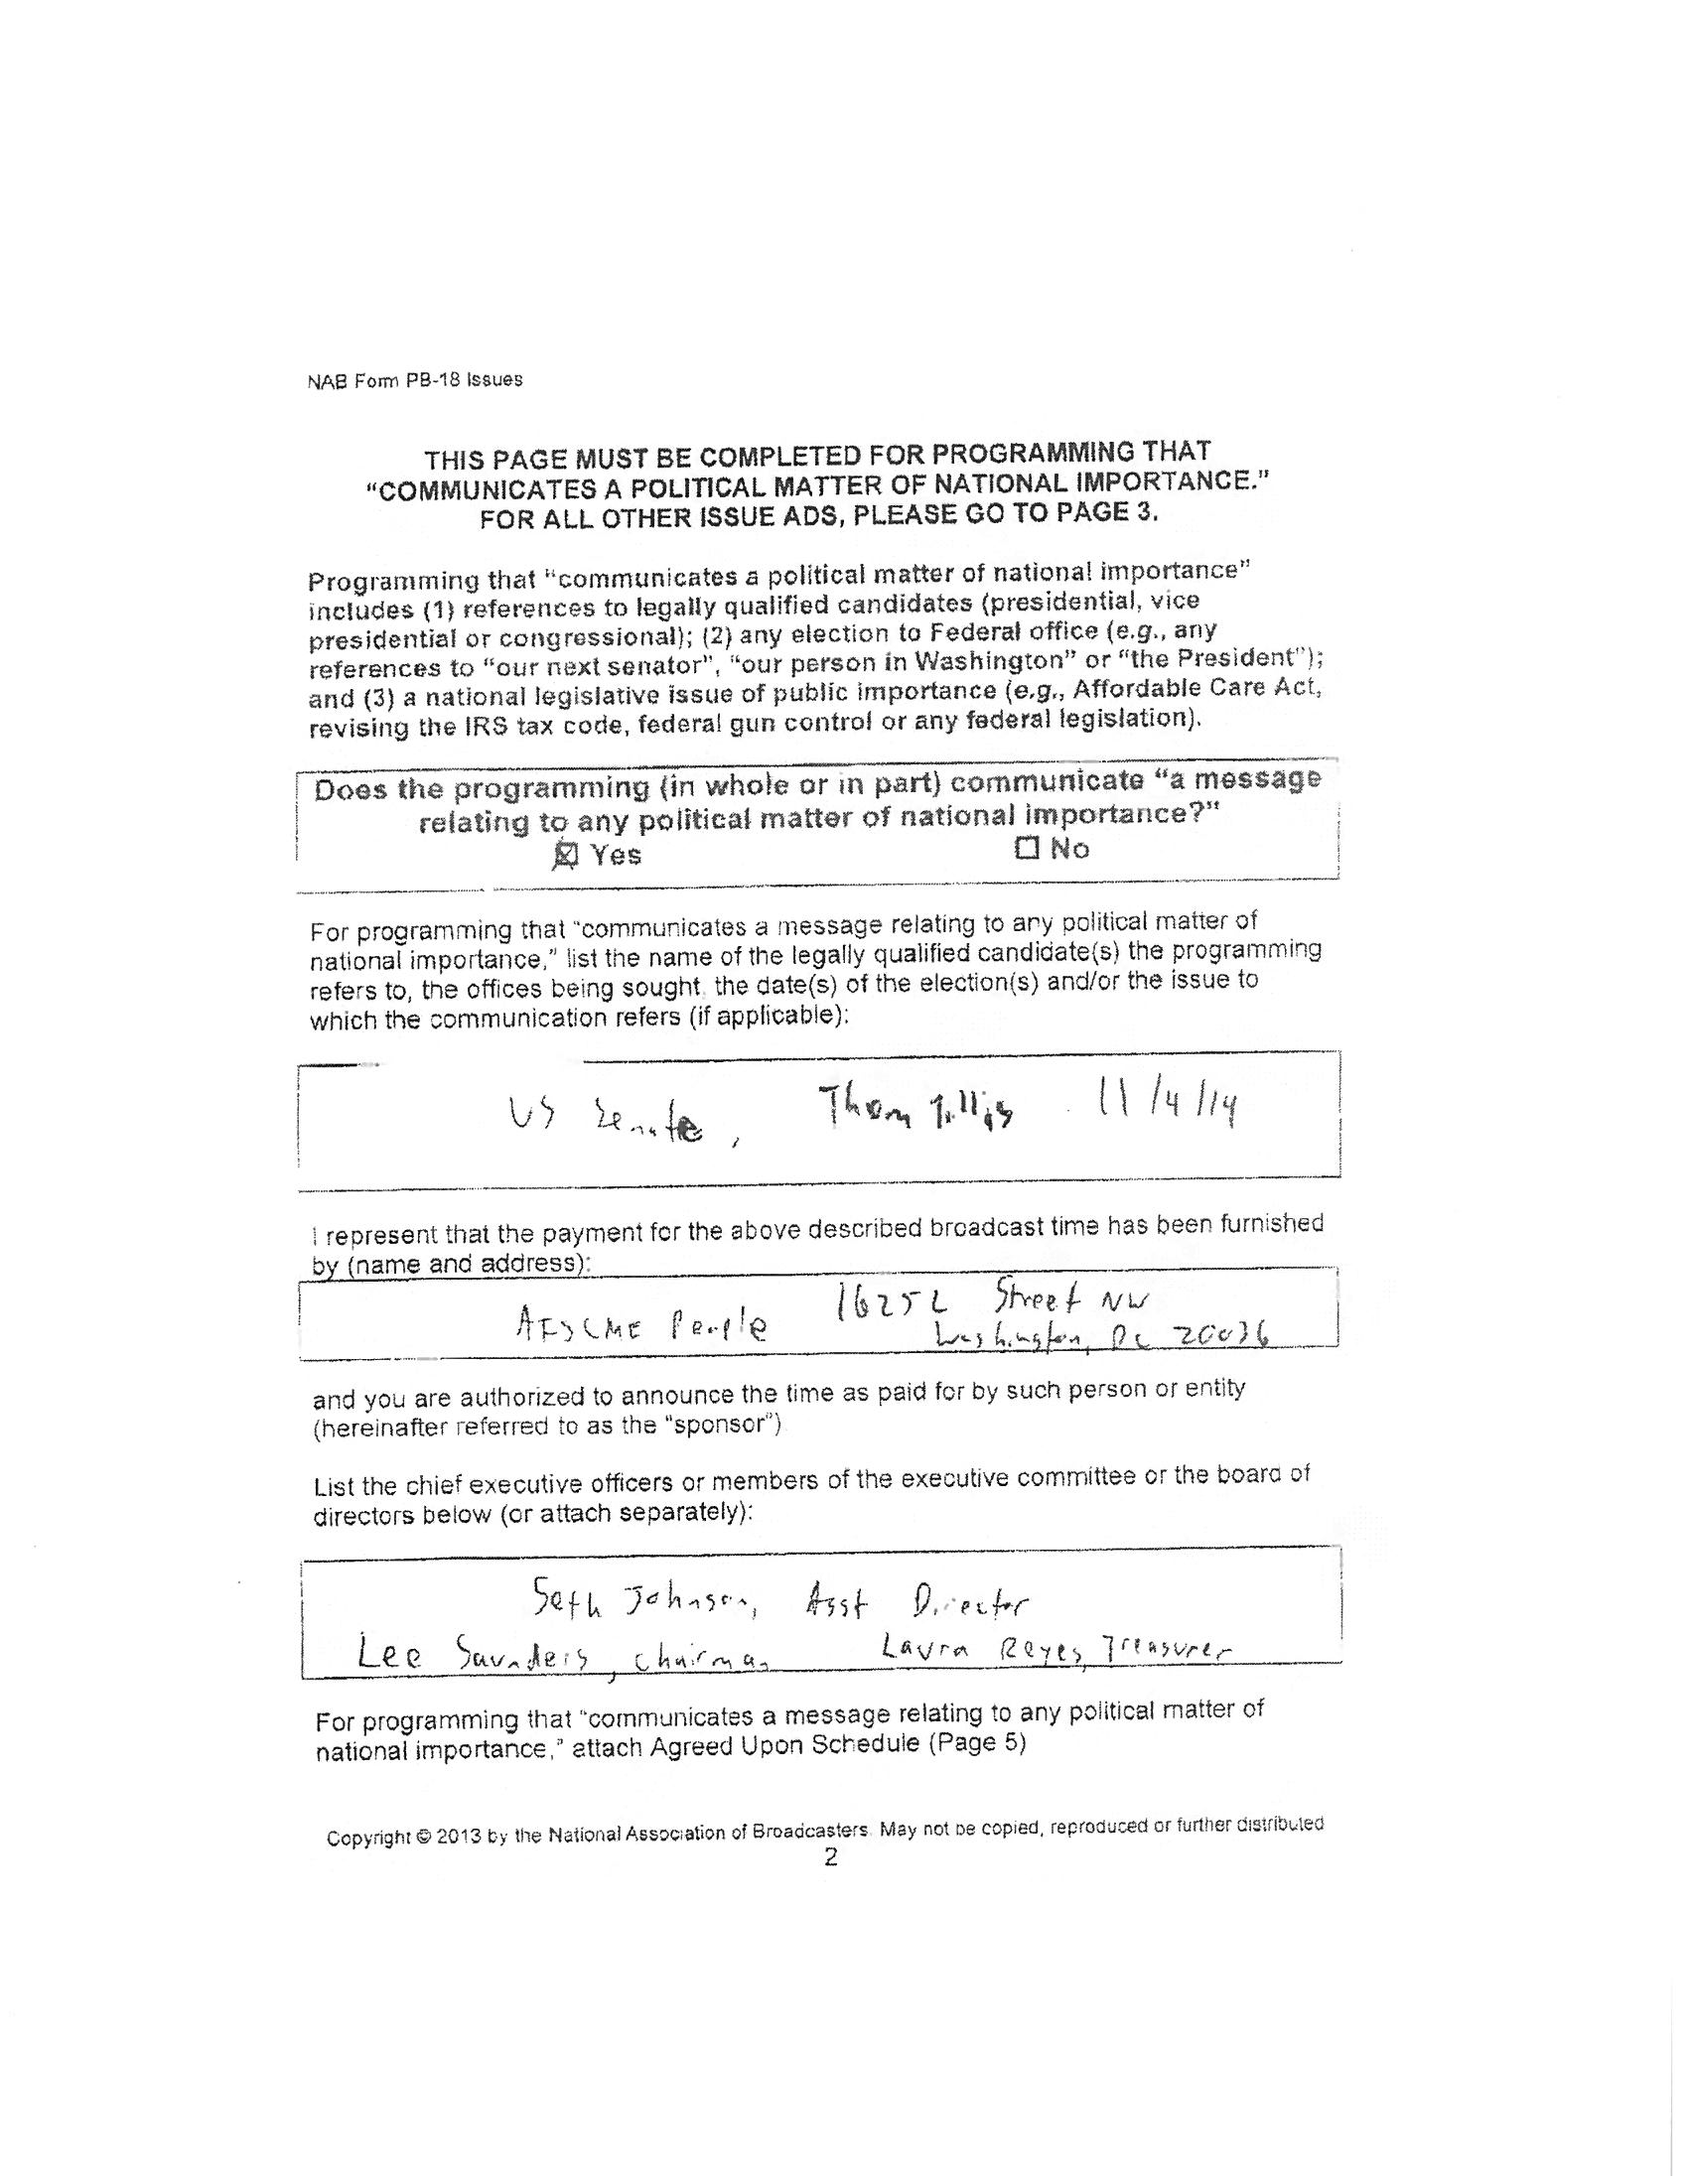 NAB Form PB-18 Issues
THIS PAGE MUST BE COMPLETED FOR PROGRAMMING THAT
“COMMUNICATES A POLITICAL MATTER OF NATIONAL IMPORTANCE.”
FOR ALL OTHER ISSUE ADS, PLEASE GO TO PAGE 3.
Programming that “communicates a political matter of national importance”
includes (1) references to legally qualified candidates (presidential, vice
presidential or congressional); (2) any election to Federal office (e.g., any
references to “our next senator”, “our person in Washington” or “the President”);
and (3) a national legislative issue of public importance (e.g., Affordable Care Act,
revising the IRS tax code, federal gun control or any federal legislation).
Does the programming (in whole or in part) communicate “a message
relating to any political matter of national importance?”
☒ Yes ☐ No
For programming that “communicates a message relating to any political matter of
national importance,” list the name of the legally qualified candidate(s) the programming
refers to, the offices being sought, the date(s) of the election(s) and/or the issue to
which the communication refers (if applicable):
US Senate, Thom Tillis 11/4/14
I represent that the payment for the above described broadcast time has been furnished
by (name and address):
AFSCME People 1625 L Street NW
Washington, DC 20036
and you are authorized to announce the time as paid for by such person or entity
(hereinafter referred to as the “sponsor”)
List the chief executive officers or members of the executive committee or the board of
directors below (or attach separately):
Seth Johnson, Asst Director
Lee Saunders, Chairman Laura Reyes, Treasurer
For programming that “communicates a message relating to any political matter of
national importance,” attach Agreed Upon Schedule (Page 5)
Copyright © 2013 by the National Association of Broadcasters. May not be copied, reproduced or further distributed
2